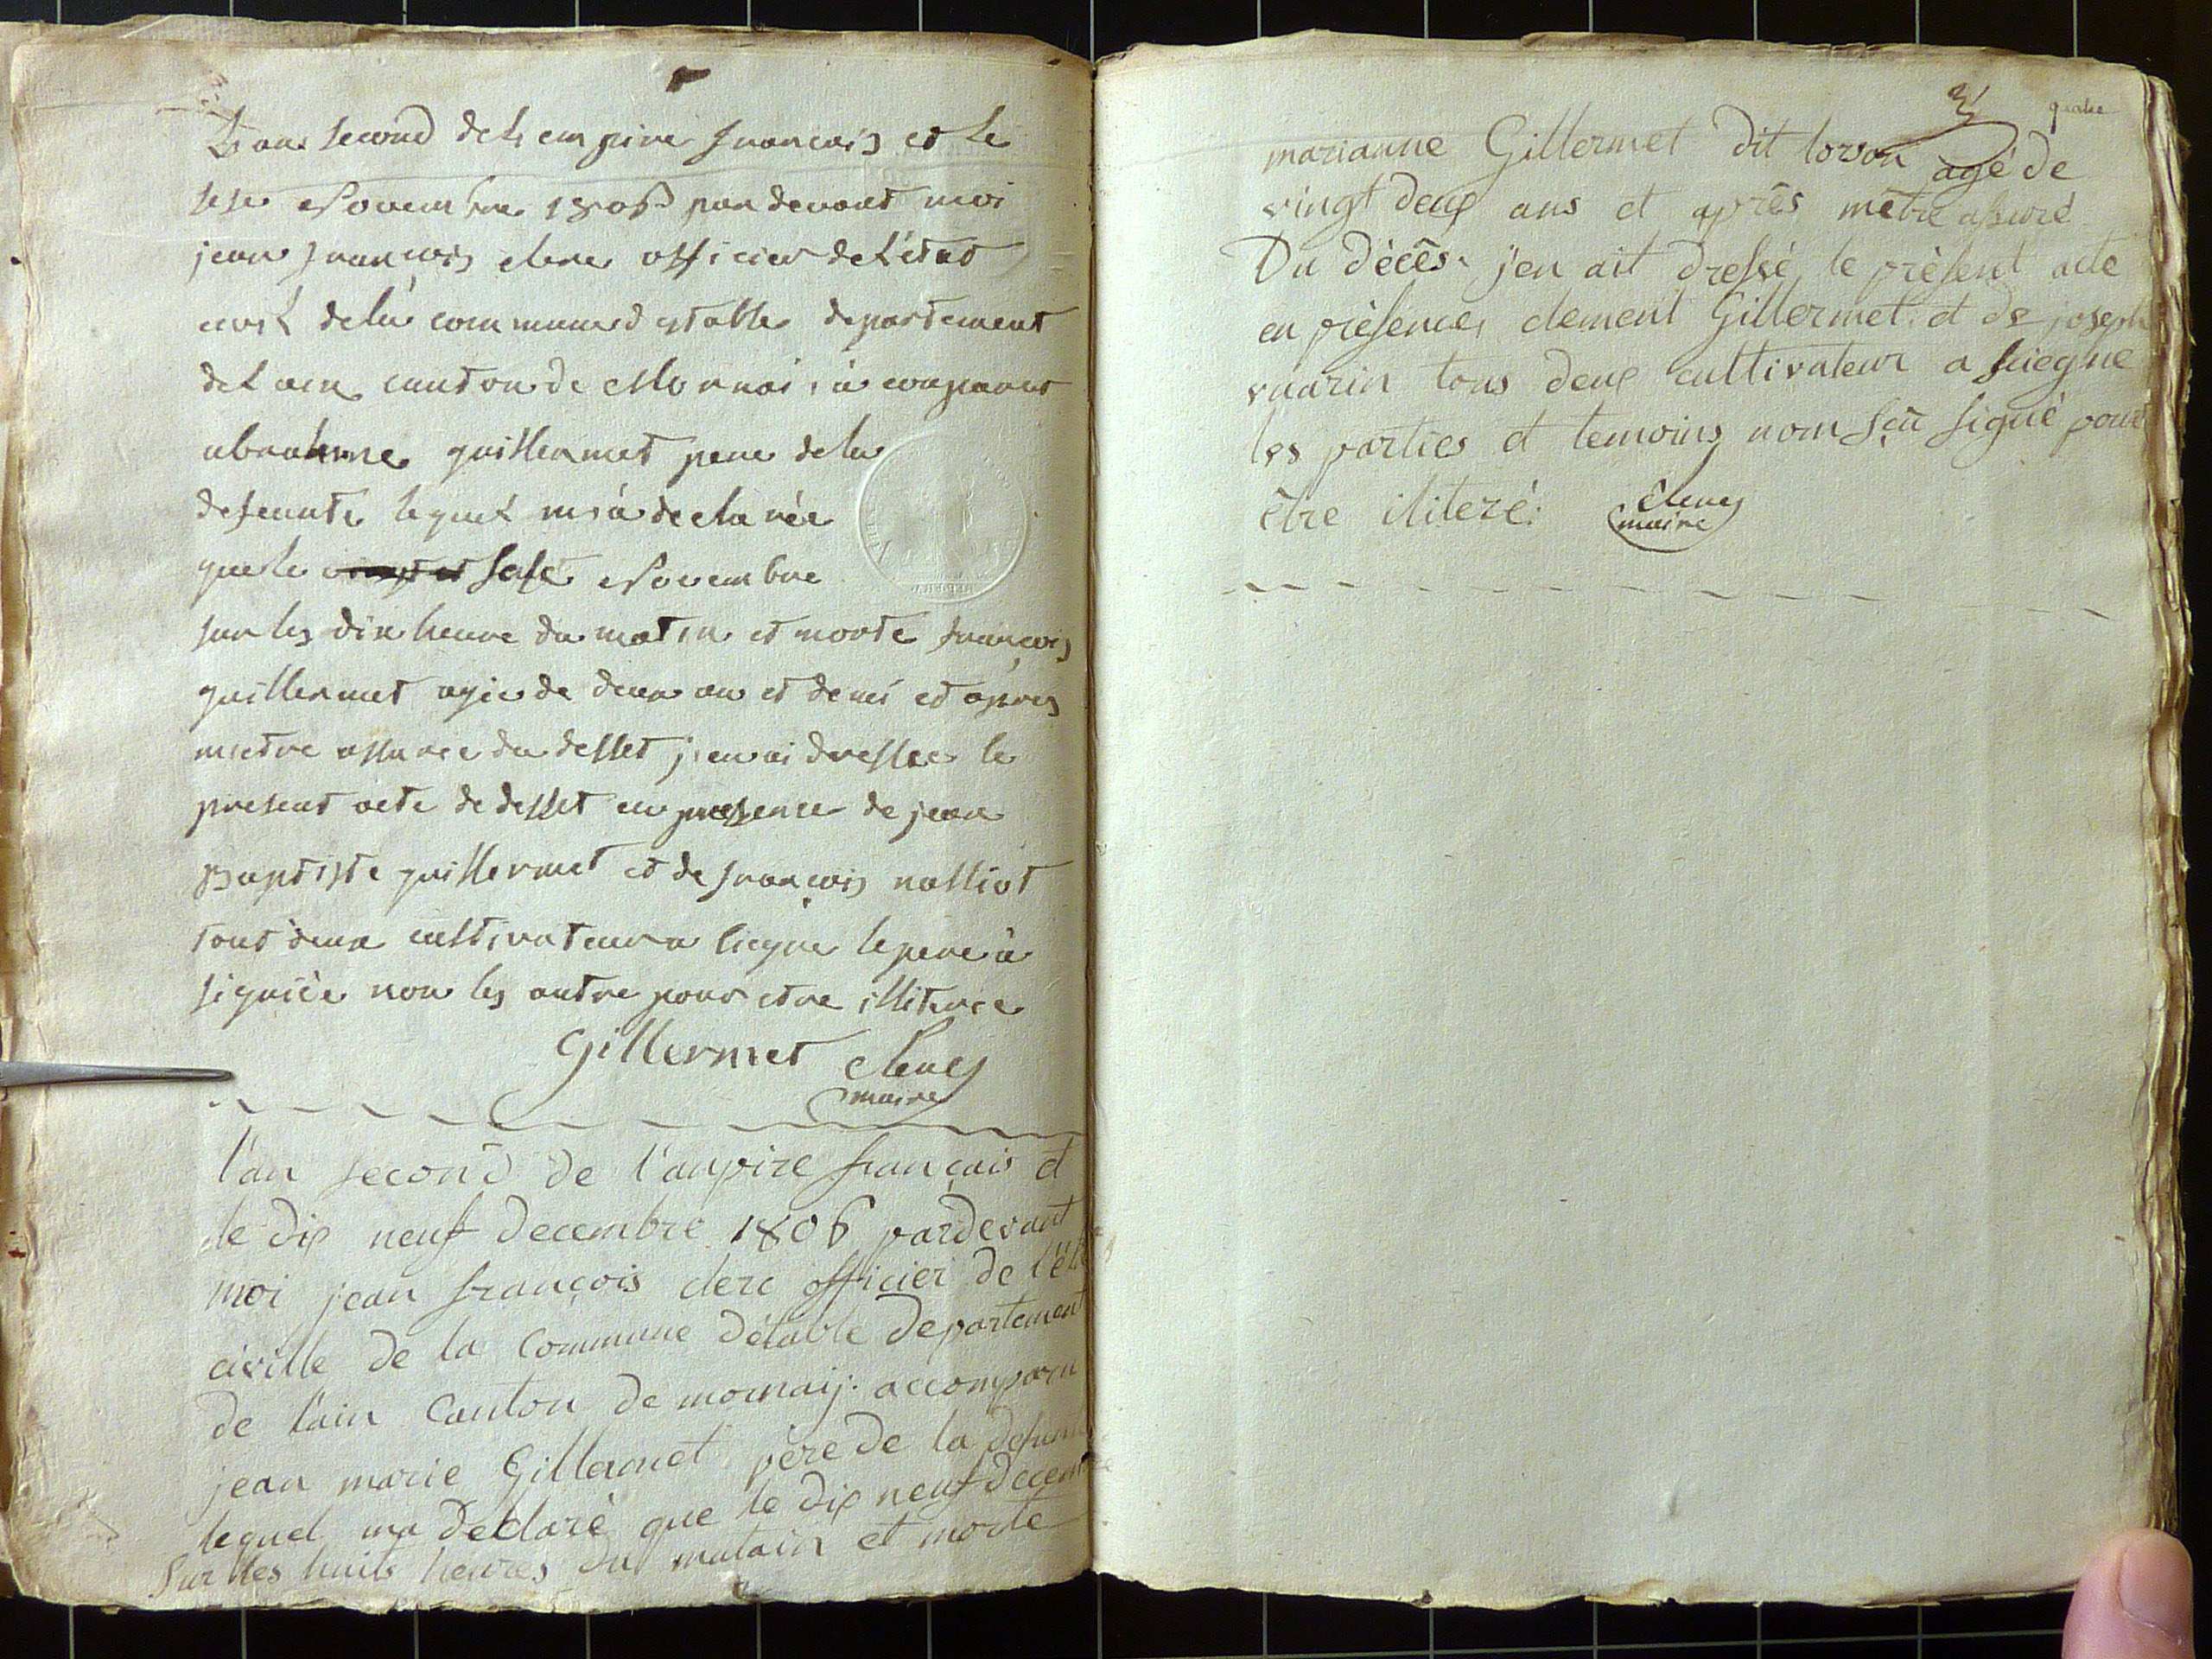 L'an second de L empire francais et Le
sese Novembre 1806 par devant moi
jean francois clerc officier de L'état
civil de la commune d etable departement
de L ain canton de Mornai, à comparut
abraham guillermet pere de la
defeunte lequel m'a declarée
que le sese Novembre
sur les dix heure du matin et morte françois
guillermet agie de deux an et demi et apres
m'etre assuree du desset j en ai dressee le
present acte de desset en presence de jean
Baptiste guillermet et de françois nalliot
tout deux cultivateur a ciegne le pere à
signiée non les autre pour etre illiteree
Gillermet clerc
maire
l'an second de l'anpire français et
le dix neuf decembre 1806 pardevant
moi jean françois clerc officier de l'ét
civille de la Commune détable departement
de l'ain Canton de mornaij. accomparu
jean marie Gillermet père de la defunt
lequel ma declaré que le dix neuf decem
Sur les huits heures du matain et morte
3 quatre
marianne Gillermet dit lovon agé de
vingt deux ans et après mètre assuré
Du dècès. j'en ait dressé le prèsent acte
en prèsence, clement Gillermet. et de joseph
vuarin tous deux cultivateur a sciegne
les parties et temoins nom sçu signé pour
être iliteré: clerc
maire